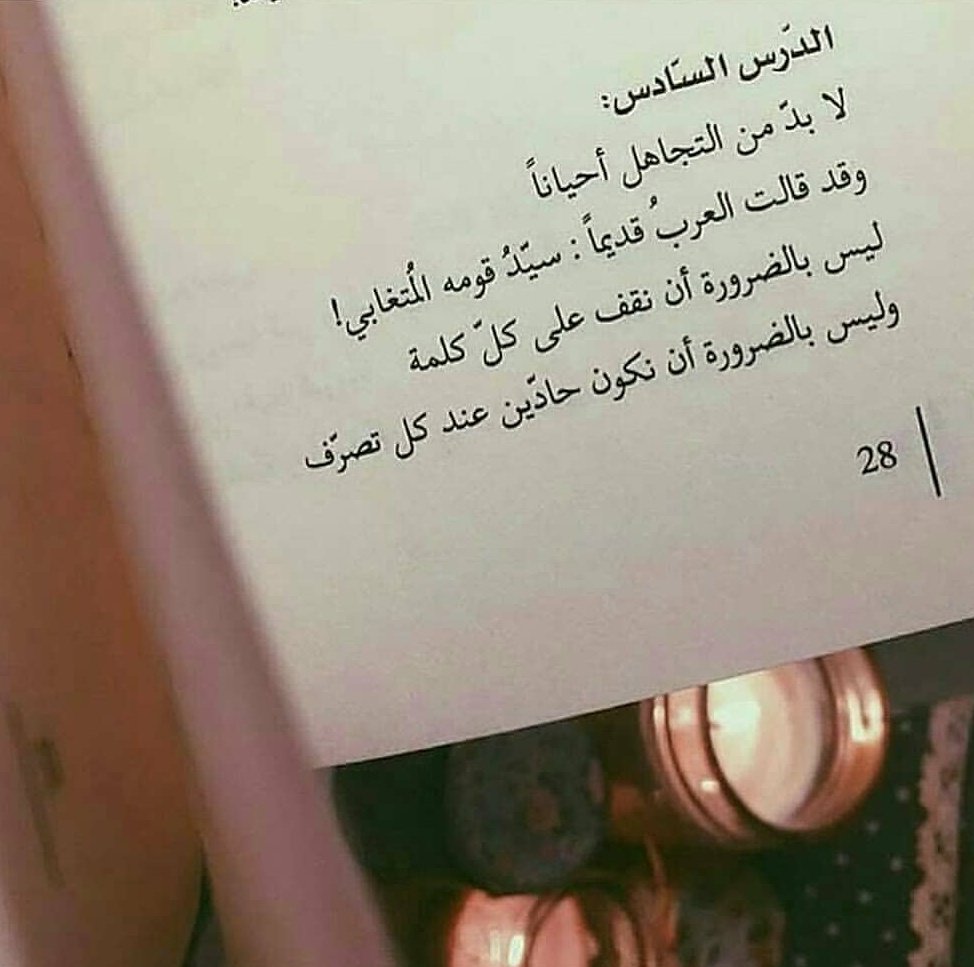 الدّرس السّادس:
لا بدّ من التجاهل أحياناً
وقد قالت العربُ قديماً : سيّدُ قومه المُتغابي!
ليس بالضرورة أن نقف على كلّ كلمة
وليس بالضرورة أن نكون حادّين عند كل تصرّف
28